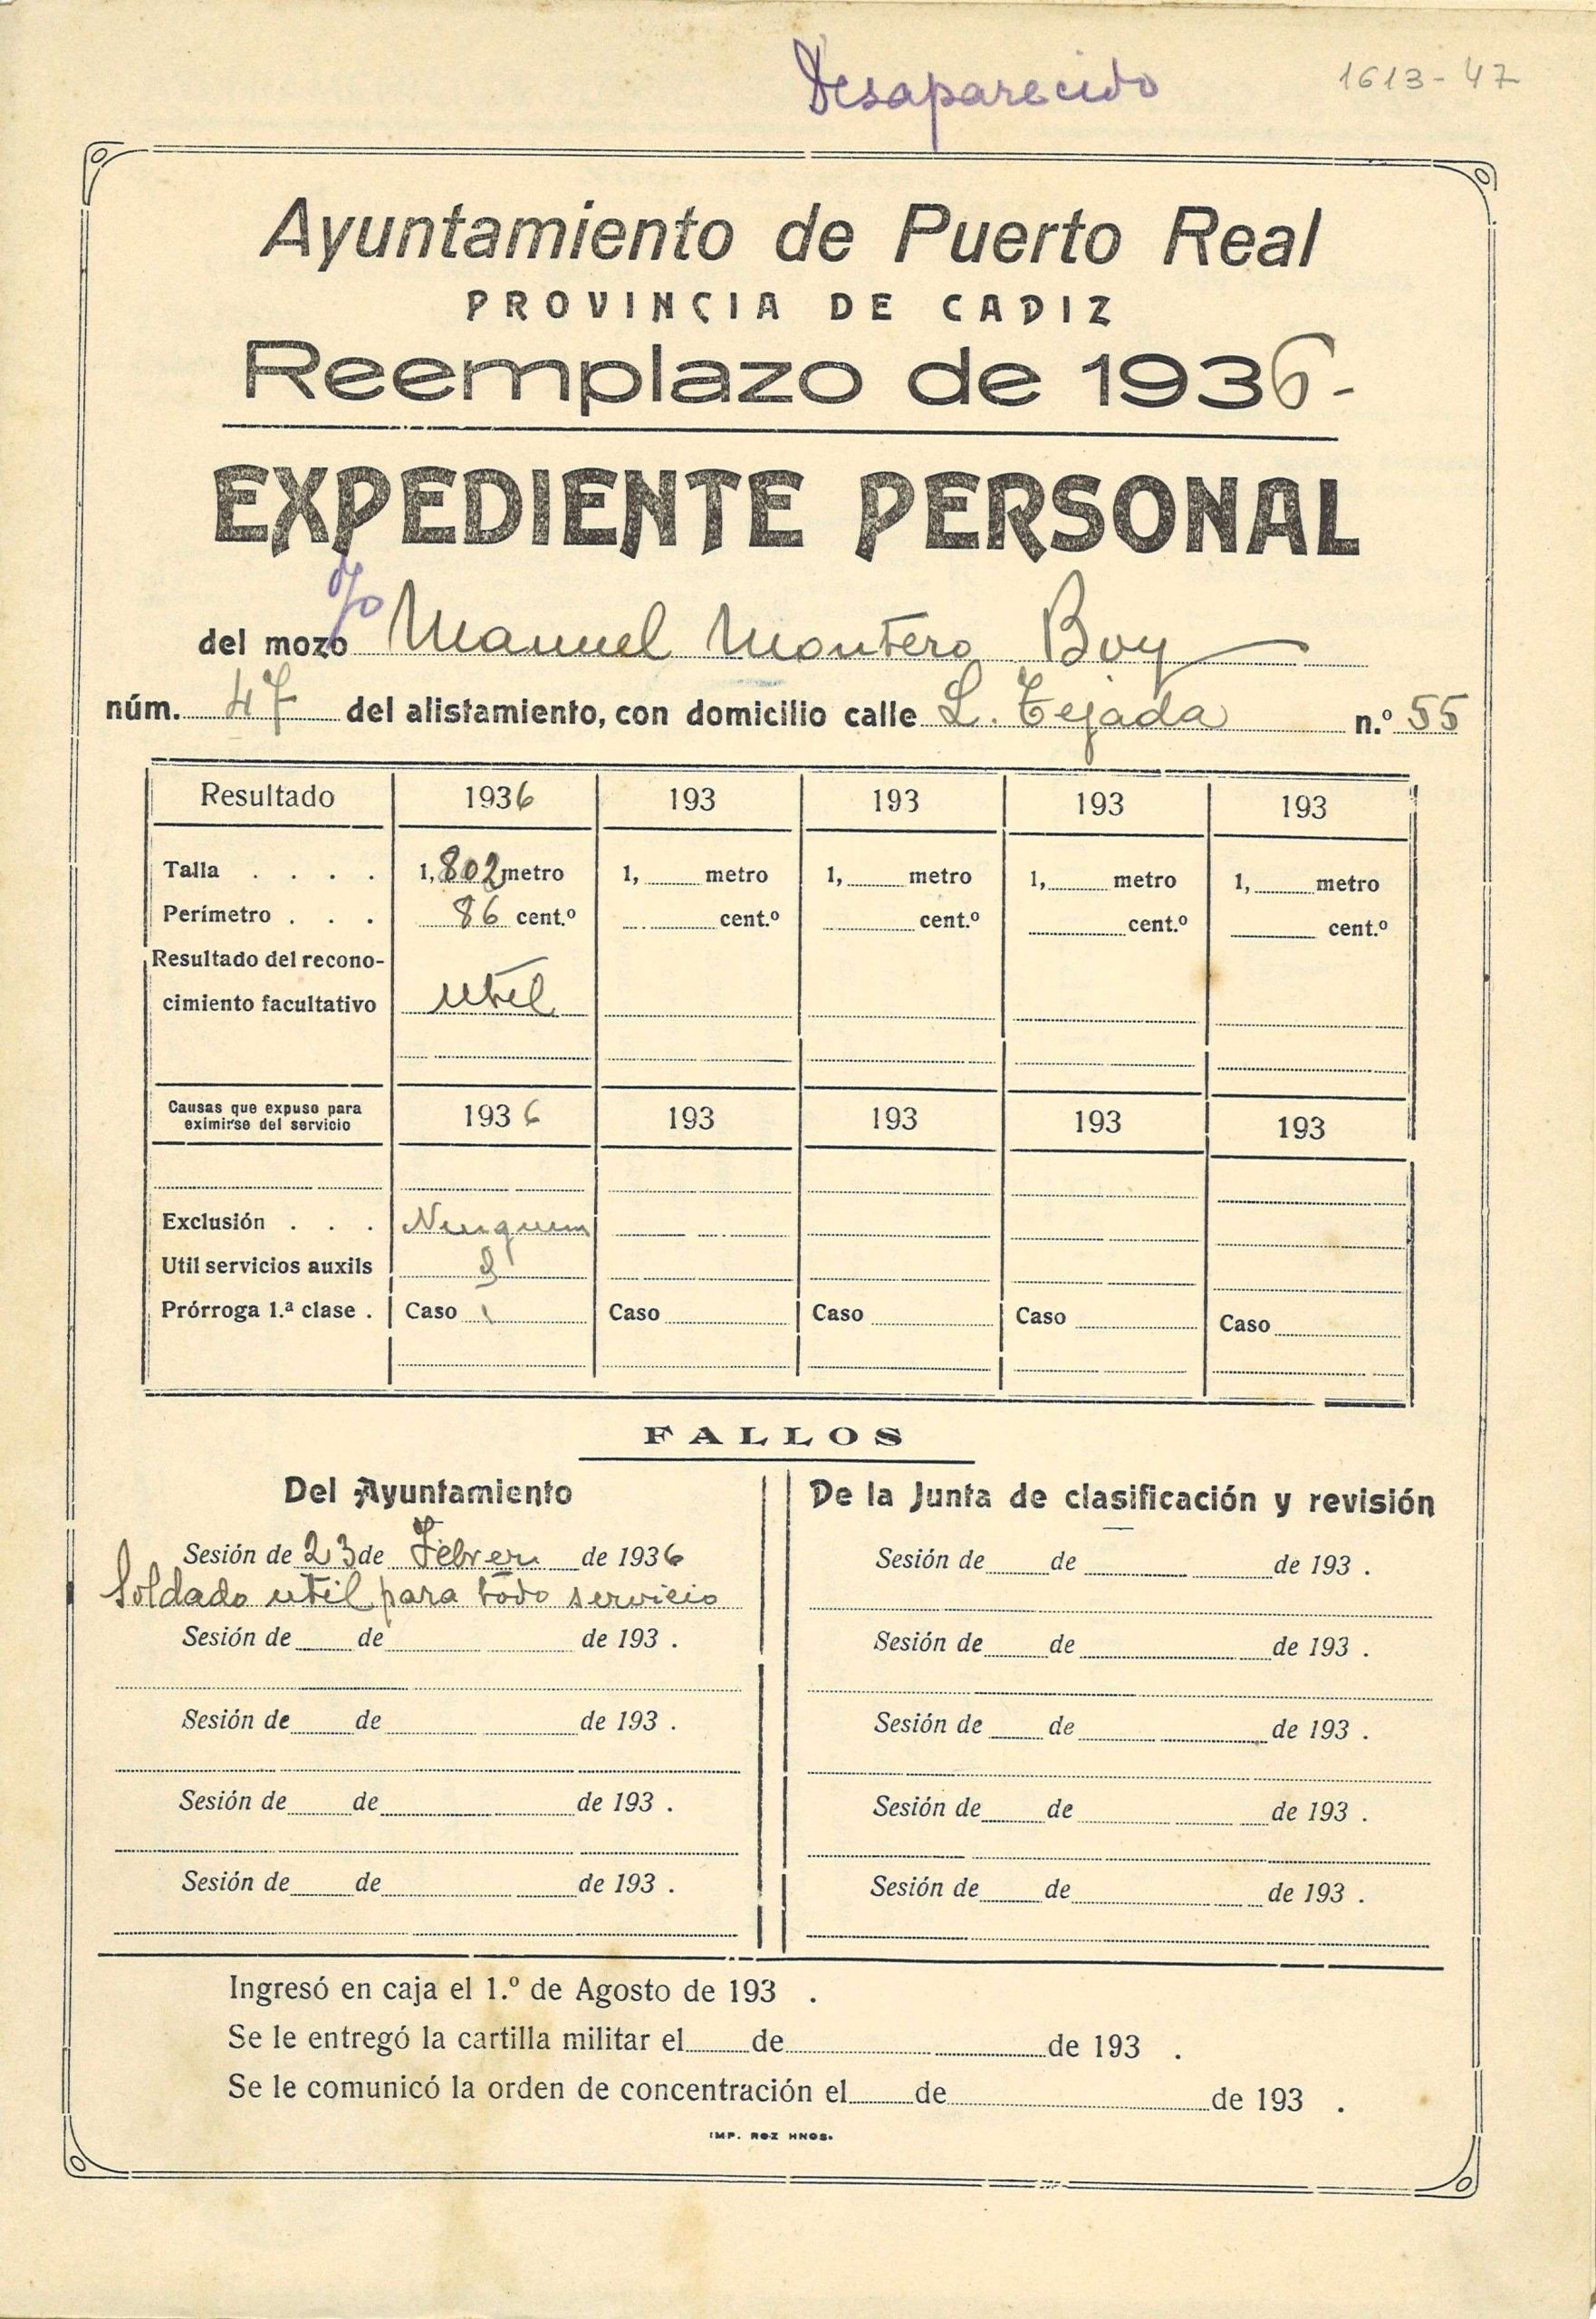 Desaparecido
1613-47
Ayuntamiento de Puerto Real
PROVINCIA DE CADIZ
Reemplazo de 1936-
EXPEDIENTE PERSONAL
del mozo Manuel Montero Boy
núm. 47 del alistamiento, con domicilio calle L. Tejada n.º 55
Resultado 1936 193 193 193 193
Talla . . . . 1,802 metro 1, metro 1, metro 1, metro 1, metro
Perímetro . . . 86 cent.º cent.º cent.º cent.º cent.º
Resultado del recono-
cimiento facultativo util
Causas que expuso para
eximirse del servicio 1936 193 193 193 193
Exclusión . . . Ninguna
Util servicios auxils
Prórroga 1.ª clase . Caso Caso Caso Caso Caso
FALLOS
Del Ayuntamiento
Sesión de 23 de Febrero de 1936
Soldado util para todo servicio
Sesión de de de 193 .
Sesión de de de 193 .
Sesión de de de 193 .
Sesión de de de 193 .
De la Junta de clasificación y revisión
Sesión de de de 193 .
Sesión de de de 193 .
Sesión de de de 193 .
Sesión de de de 193 .
Sesión de de de 193 .
Ingresó en caja el 1.º de Agosto de 193 .
Se le entregó la cartilla militar el de de 193 .
Se le comunicó la orden de concentración el de de 193 .
IMP. ROZ HNOS.